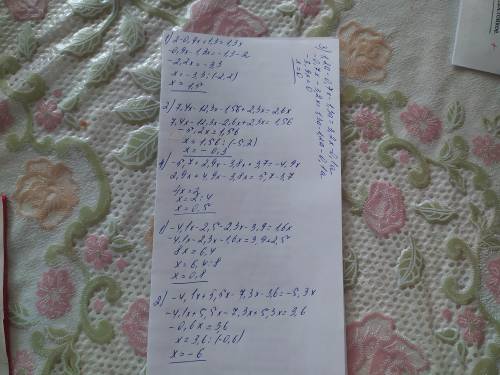 1) 2-0,9x+1,3=1,3x
-0,9x-1,3x=-1,3-2
-2,2x=-3,3
x=-3,3:(-2,2)
x=1,5
2) 7,4x-12,3x-1,56+2,3x=2,6x
7,4x-12,3x-2,6x+2,3x=1,56
-5,2x=1,56
x=1,56:(-5,2)
x=-0,3
-5,7+2,9x-3,8x+3,7=-4,9x
2,9x+4,9x-3,8x=5,7-3,7
4x=2
x=2:4
x=0,5
1) -4,1x-2,5-2,3x-3,9=1,6x
-4,1x-2,3x-1,6x=3,9+2,5
8x=6,4
x=6,4:8
x=0,8
2) -4,1x+5,5x-7,3x-3,6=-5,3x
-4,1x+5,5x-7,3x+5,3x=3,6
-0,6x=3,6
x=3,6:(-0,6)
x=-6
x=0